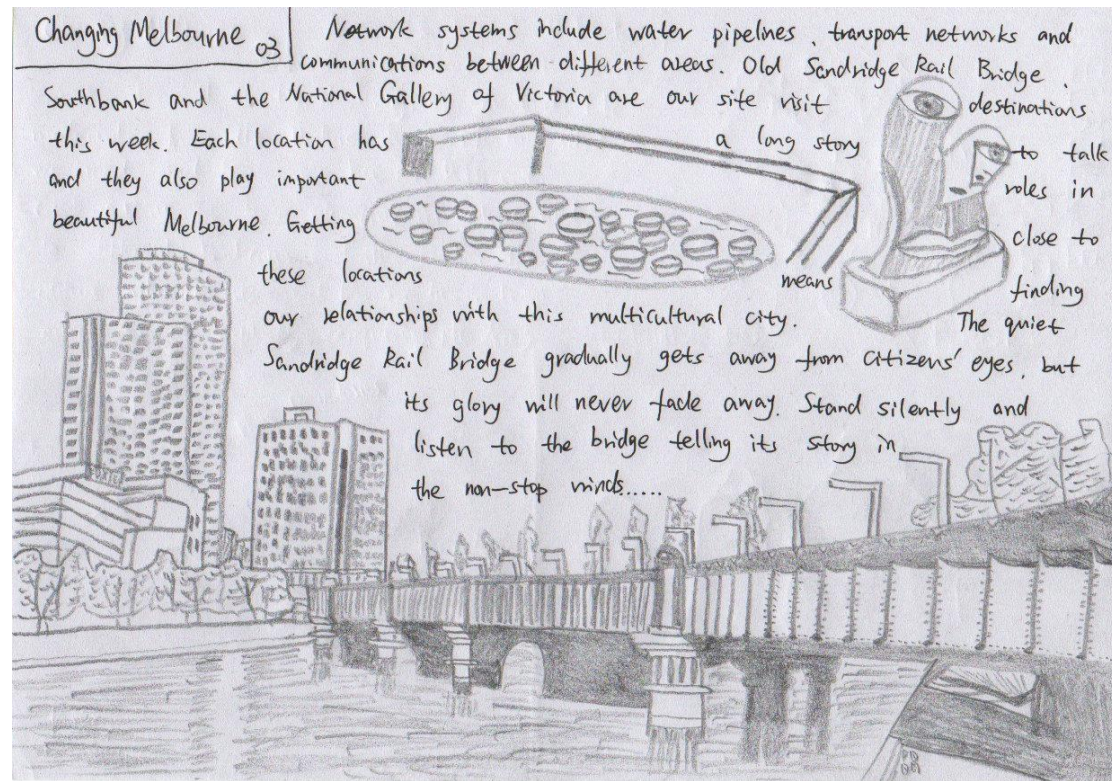 Changing Melbourne 03
Network systems include water pipelines, transport networks and
communications between different areas. Old Sandridge Rail Bridge,
Southbank and the National Gallery of Victoria are our site visit destinations
this week. Each location has a long story to talk
and they also play important roles in
beautiful Melbourne. Getting close to
these locations means finding
our relationships with this multicultural city. The quiet
Sandridge Rail Bridge gradually gets away from citizens' eyes, but
its glory will never fade away. Stand silently and
listen to the bridge telling its story in
the non-stop winds.....